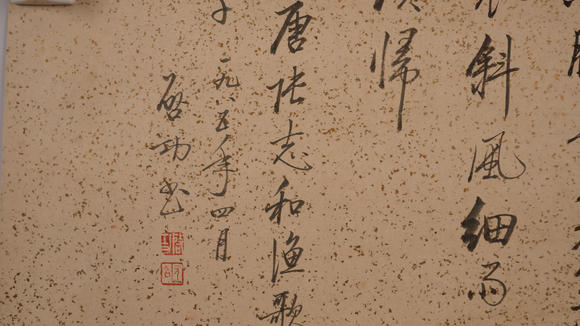 斜風細雨
歸
唐張志和漁歌
子 一九八五年四月
啓功書